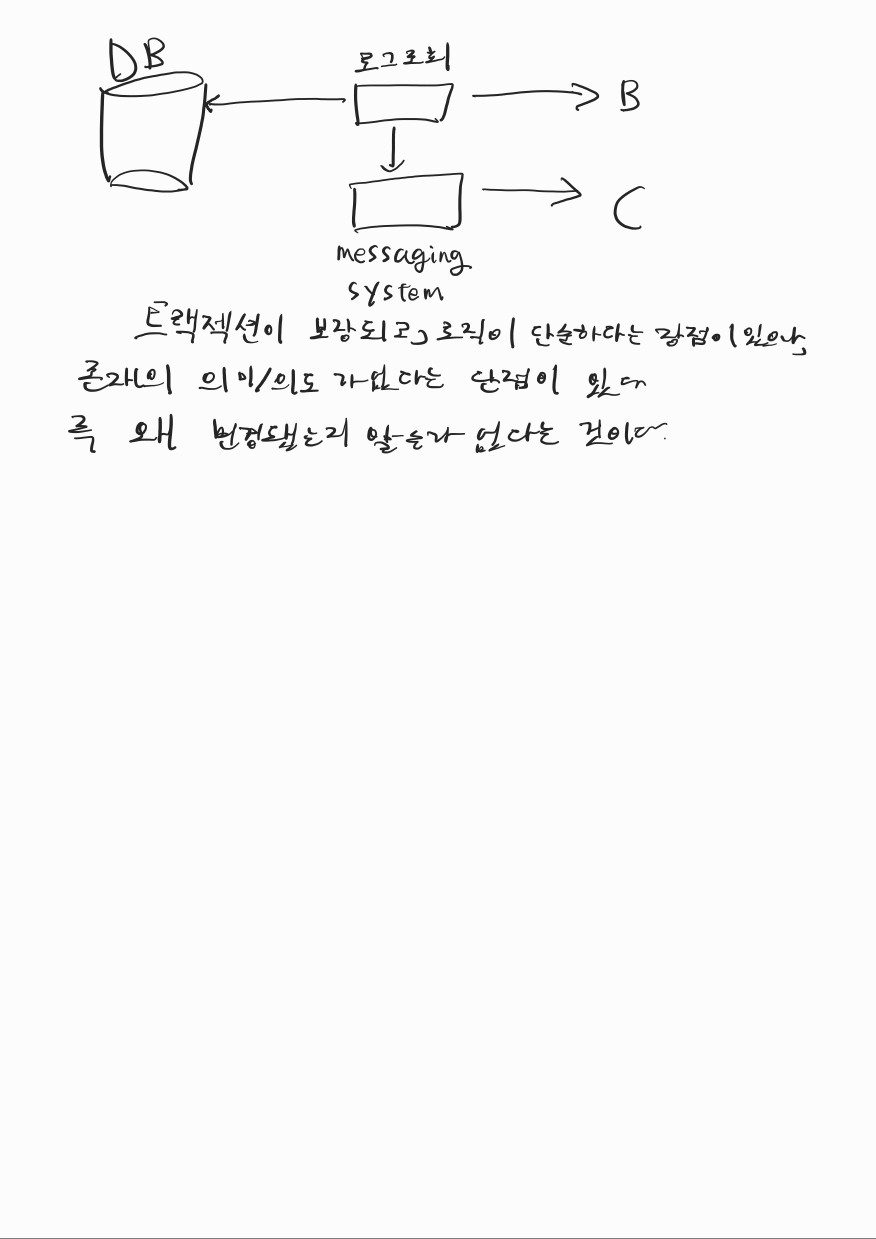 DB
로그조회
B
C
messaging
system
트랙젝션이 보장되고, 로직이 단순하다는 장점이 있으나,
의미/의도가 없다는 단점이 있다
즉 왜 변경됐는지 알 수가 없다는 것이다.